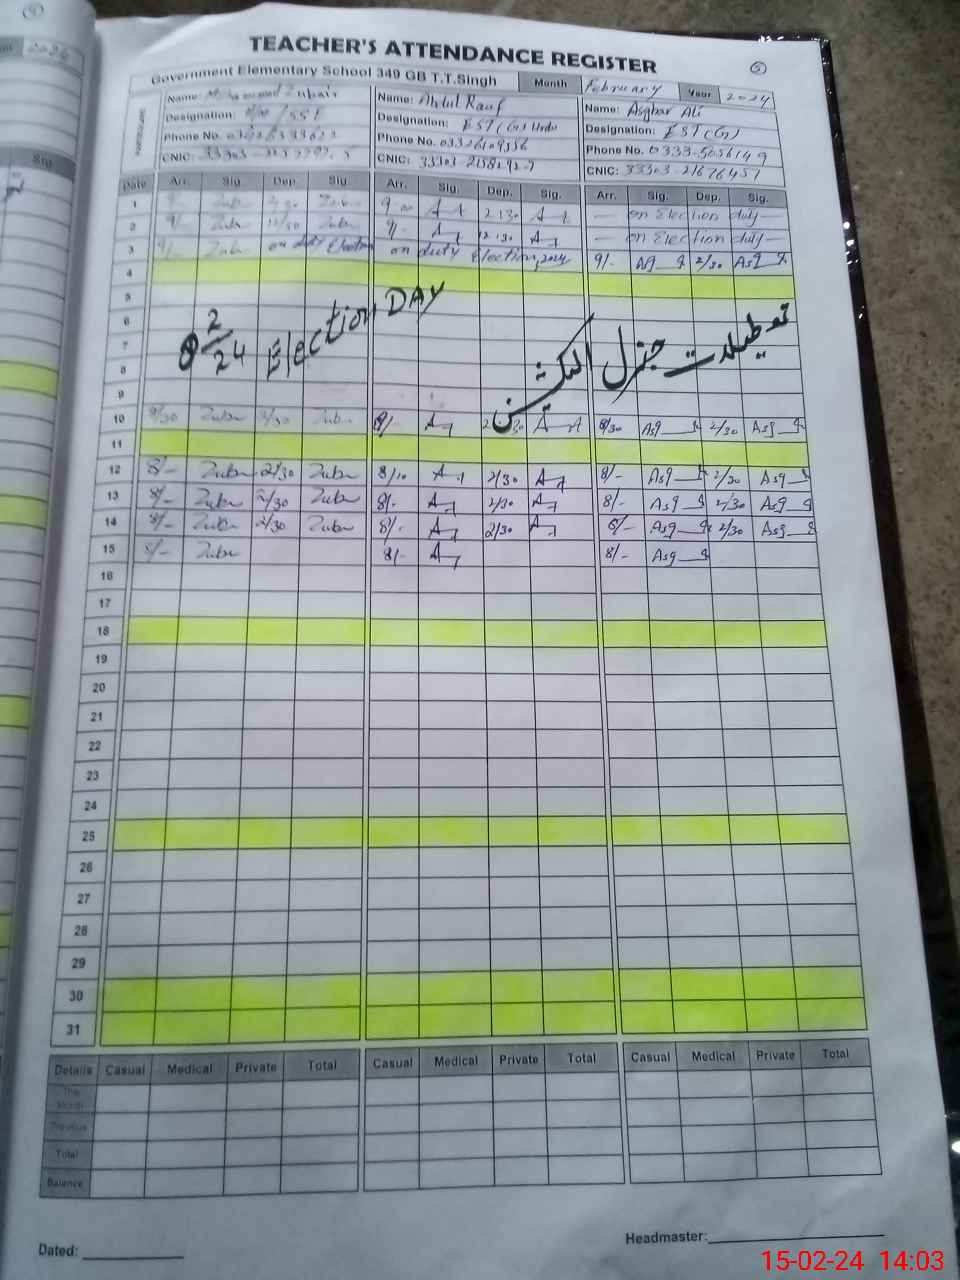 5
2024
Sig.
TEACHER'S ATTENDANCE REGISTER
5
Government Elementary School 349 GB T.T.Singh Month February Year 2024
Name: Muhammad Zubair Name: Abdul Rauf Name: Asghar Ali
Designation: / SSE Designation: EST (G) Designation: EST (G)
Phone No. Phone No. 03326109556 Phone No. 0333-5056149
CNIC: CNIC: CNIC: 33303-21676457
Date Arr. Sig. Dep. Sig. Arr. Sig. Dep. Sig. Arr. Sig. Dep. Sig.
1 9- Zuba 2/30 Zuba 9-00 A 2:30 A — on Election duty —
2 9/- Zuba 12/30 Zuba 9/- A 12:30 A — on Election duty —
3 9/- Zuba on duty Election on duty Election, 2024 9/- Asg 2/30 Asg
4
5
6
7
8
8 2/24 Election DAY
تعطیلات جنرل الیکشن
9
10 8/30 Zuba 2/30 Zuba 8/- A 2:30 A 8/30 Asg 2/30 Asg
11
12 8/- Zuba 2/30 Zuba 8/10 A 2/30 A 8/- Asg 2/30 Asg
13 8/- Zuba 2/30 Zuba 8/- A 2/30 A 8/- Asg 2/30 Asg
14 8/- Zuba 2/30 Zuba 8/- A 2/30 A 8/- Asg 2/30 Asg
15 8/- Zuba 8/- A 8/- Asg
16
17
18
19
20
21
22
23
24
25
26
27
28
29
30
31
Details Casual Medical Private Total Casual Medical Private Total Casual Medical Private Total
This Month
Previous
Total
Balance
Dated: Headmaster:
15-02-24 14:03